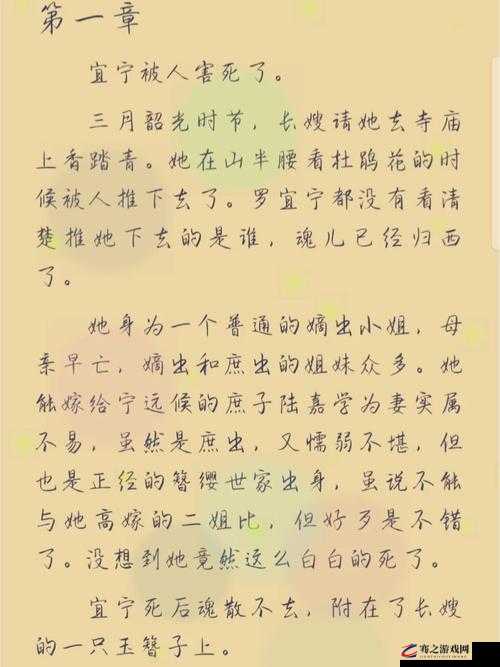 第一章
宜宁被人害死了。
三月韶光时节，长嫂请她去寺庙
上香踏青。她在山半腰看杜鹃花的时
候被人推下去了。罗宜宁都没有看清
楚推她下去的是谁，魂儿已经归西
了。
她身为一个普通的嫡出小姐，母
亲早亡，嫡出和庶出的姐妹众多。她
能嫁给宁远候的庶子陆嘉学为妻实属
不易，虽然是庶出，又懦弱不堪，但
也是正经的簪缨世家出身，虽说不能
与她高嫁的二姐比，但好歹是不错
了。没想到她竟然这么白白的死了。
宜宁死后魂散不去，附在了长嫂
的一只玉簪子上。
骞之游戏网